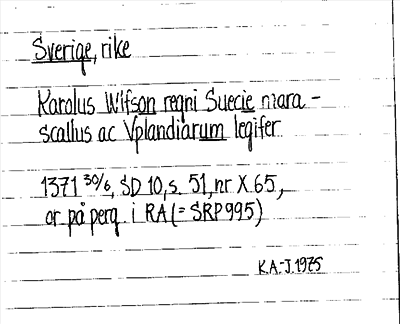 Sverige, rike
Karolus Wlfson regni Suecie mara-
scallus ac Vplandiarum legifer
1371 30/6, SD 10, s. 51, nr X 65,
or på perg. i RA (= SRP 995)
K.A-J. 1975